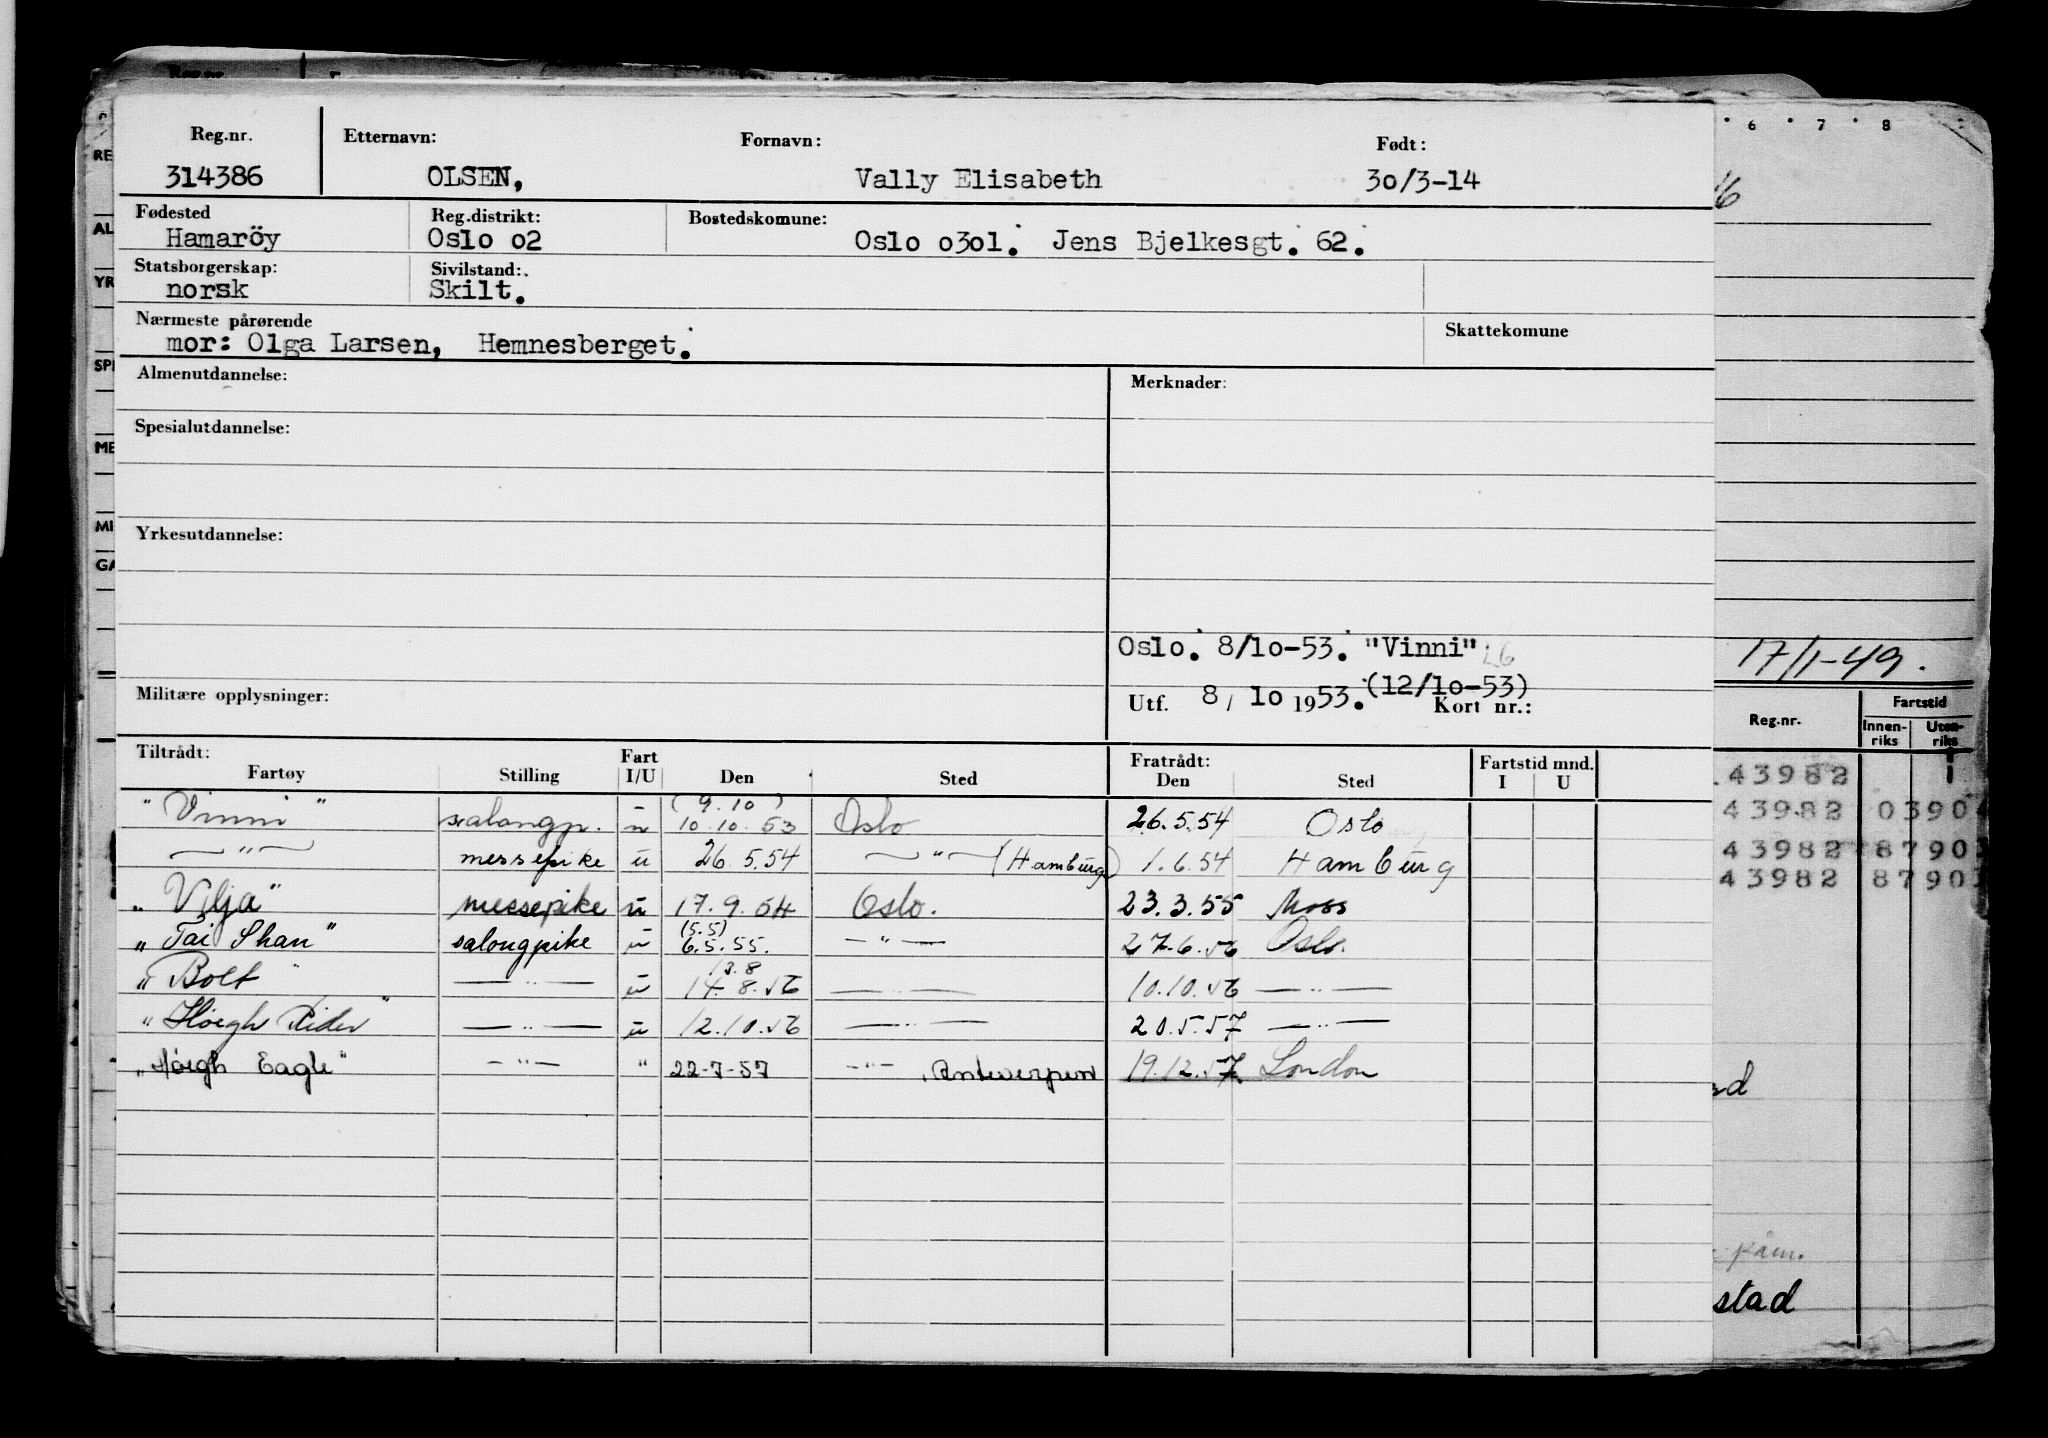 Reg.nr. Etternavn: Fornavn: Født:
314386 OLSEN, Vally Elisabeth 30/3-14
Fødested Reg.distrikt: Bostedskomune:
Hamaröy Oslo o2 Oslo o3o1. Jens Bjelkesgt. 62.
Statsborgerskap: Sivilstand:
norsk Skilt.
Nærmeste pårørende Skattekomune
mor: Olga Larsen, Hemnesberget.
Almenutdannelse: Merknader:
Spesialutdannelse:
Yrkesutdannelse:
Oslo. 8/1o-53. "Vinni"
(12/1o-53)
Militære opplysninger: Utf. 8 / 1o 1953. Kort nr.:
Tiltrådt: Fart Fratrådt: Fartstid mnd.
Fartøy Stilling I/U Den Sted Den Sted I U
(9.10)
"Vinni" salongp. u 10.10.53 Oslo 26.5.54 Oslo
— " — messepike u 26.5.54 — " — (Hamburg) 1.6.54 Hamburg
"Vilja" messepike u 17.9.54 Oslo. 23.3.55 Moss
(5.5)
"Tai Shan" salongpike u 6.5.55. — " — 27.6.56 Oslo.
13.8
"Bolt" — " — u 14.8.56 — " — 10.10.56 — " —
"Høegh Rider" — " — u 12.10.56 — " — 20.5.57 — " —
"Høegh Eagle" — " — " 22-7-57 — " — , Antwerpen 19.12.57 London
6 7 8
RE
AL
YR
SP
ME
MI
GA
17/1-49.
Reg.nr. Fartstid
Innen-riks Uten-riks
43982
43982 0390
43982 8790
43982 8790
påm.
stad